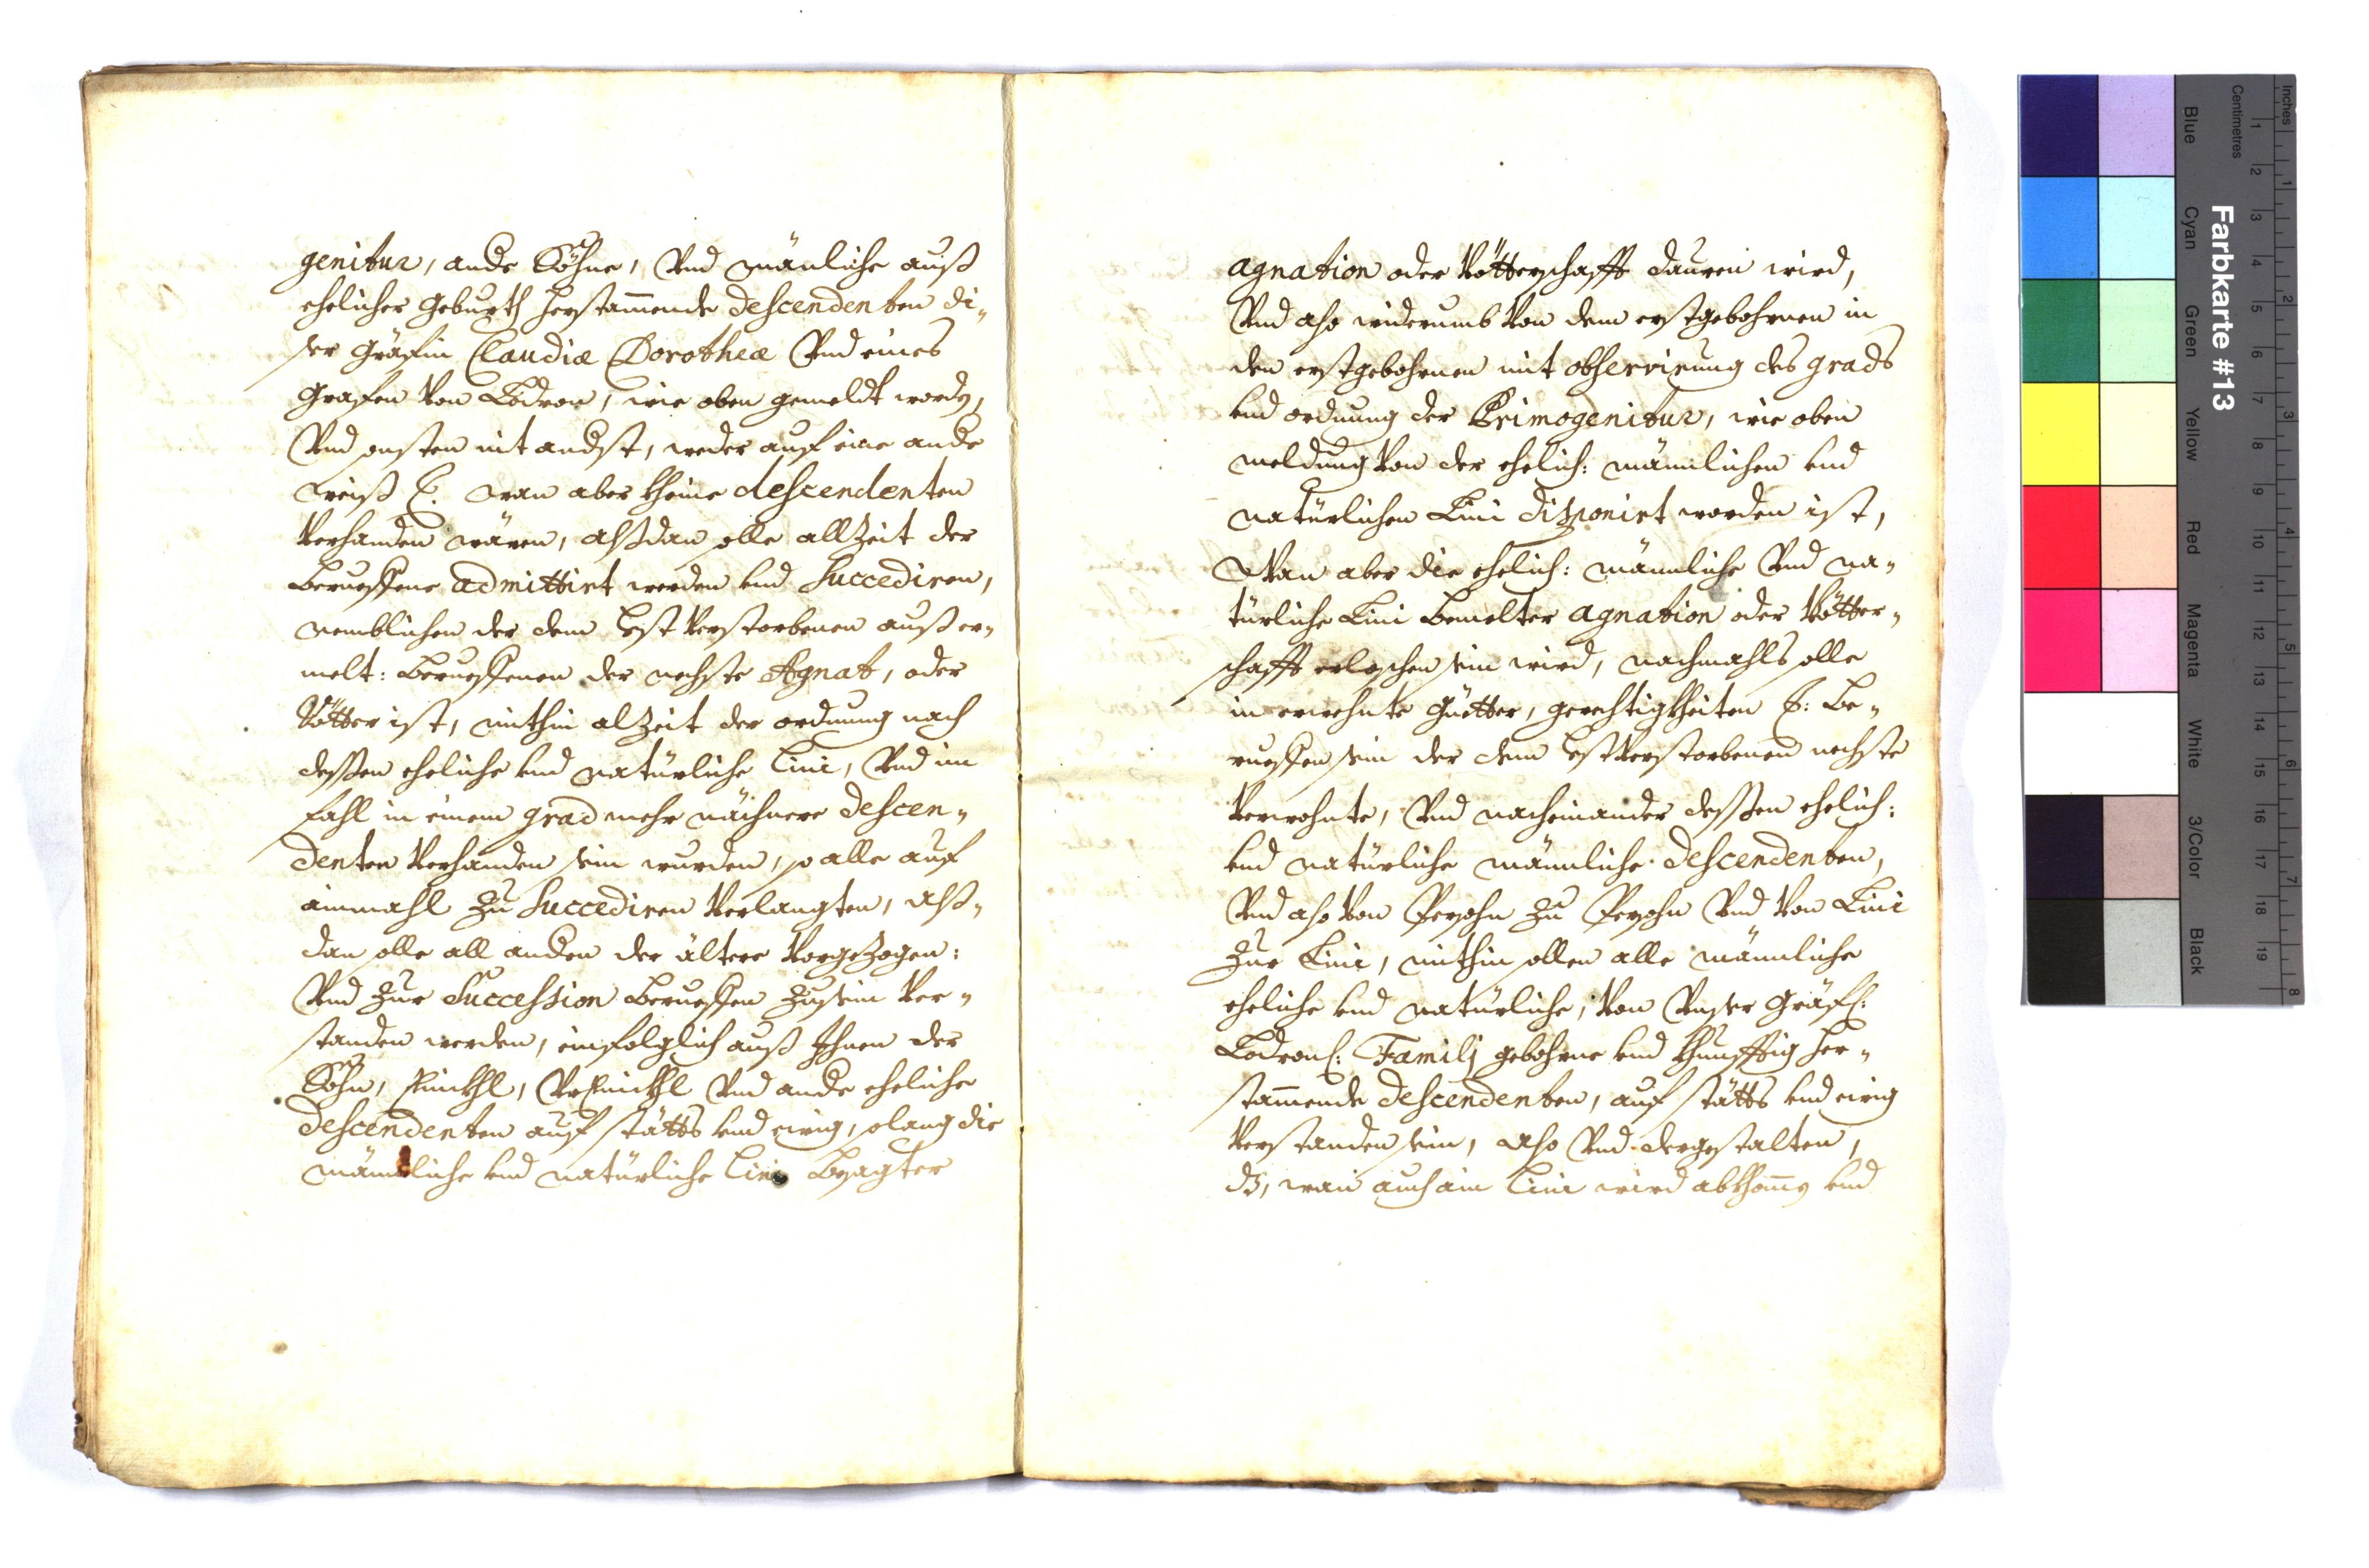 genitur, ande Söhne, Vnd mänliche auß
ehelicher Geburth herstam̄ende descendenten di„
ser Gräfin Claudiæ Dorotheæ Vnd eines
Grafen Von Lodron, wie oben gemeldt worden,
Vnd sonsten nit andst, weder auf eine ande
weiß &. wan aber kheine descendenten
Verhanden wären, alßdan solle allzeit der
berueffene admittirt werden und succediren,
nemblichen der dem lest Verstorbenen auß er„
melt: berueffenen der nechste Agnat, oder
Vötter ist, mithin alzeit der ordnung nach
dessen eheliche und natürliche Lini, Vnd im
fahl in einem grad mehr mächnere descen„
denten Verhanden sein wurden, so alle auf
ainmahl zu succediren Verlangten, alß„
dan solle all anden der ältere Vorgezogen:
Vnd zur Succession berueffen zu sein Ver„
standen werden, einfolglich auß Ihnen der
Söhn, Einikhl, VrEinikhl Vnd ande eheliche
descendenten auf stätts und ewig, solang die
mänliche und natürliche Lini besagter
agnation oder Vötterschafft dauren wird,
Vnd also widerumb Von dem erstgebohrnen in
den erstgebohrnen mit observirung des grads
und ordnung der Primogenitur, wie oben
meldung Von der ehelich: männlichen und
natürlichen Lini disponirt worden ist,
Wan aber die ehelich: männliche Vnd na„
türliche Lini bemelter agnation oder Vötter„
schafft erloschen sein wird, nachmahls solle
in erwehnte Güetter, gerechtigkheiten &: be„
rueffen sein der dem lest Verstorbenen nechste
Verwohnte, Vnd nacheinander dessen ehelich:
und natürliche männliche descendenten,
Vnd also Von Persohn zu Persohn Vnd Von Lini
zur Lini, mithin sollen alle männliche
eheliche und natürliche, Von Vnser Gräfl:
Lodronl: Familj gebohrne und khunfftig her„
stam̄ende descendenten, auf stätts und ewig
Verstanden sein, also Vnd dergestalten,
dz, wan auch ain Lini wird abkhom̄en und
Farbkarte #13
Inches
Centimetres
1 2 3 4 5 6 7 8 9 10 11 12 13 14 15 16 17 18 19
1 2 3 4 5 6 7 8
Blue
Cyan
Green
Yellow
Red
Magenta
White
3/Color
Black